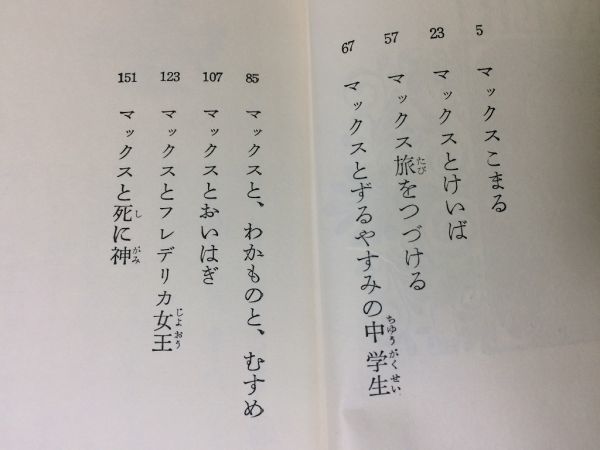 5 マックスこまる
23 マックスとけいば
57 マックス旅をつづける
たび
67 マックスとずるやすみの中学生
ちゆうがくせい
85 マックスと、わかものと、むすめ
107 マックスとおいはぎ
123 マックスとフレデリカ女王
じよおう
151 マックスと死に神
し
がみ